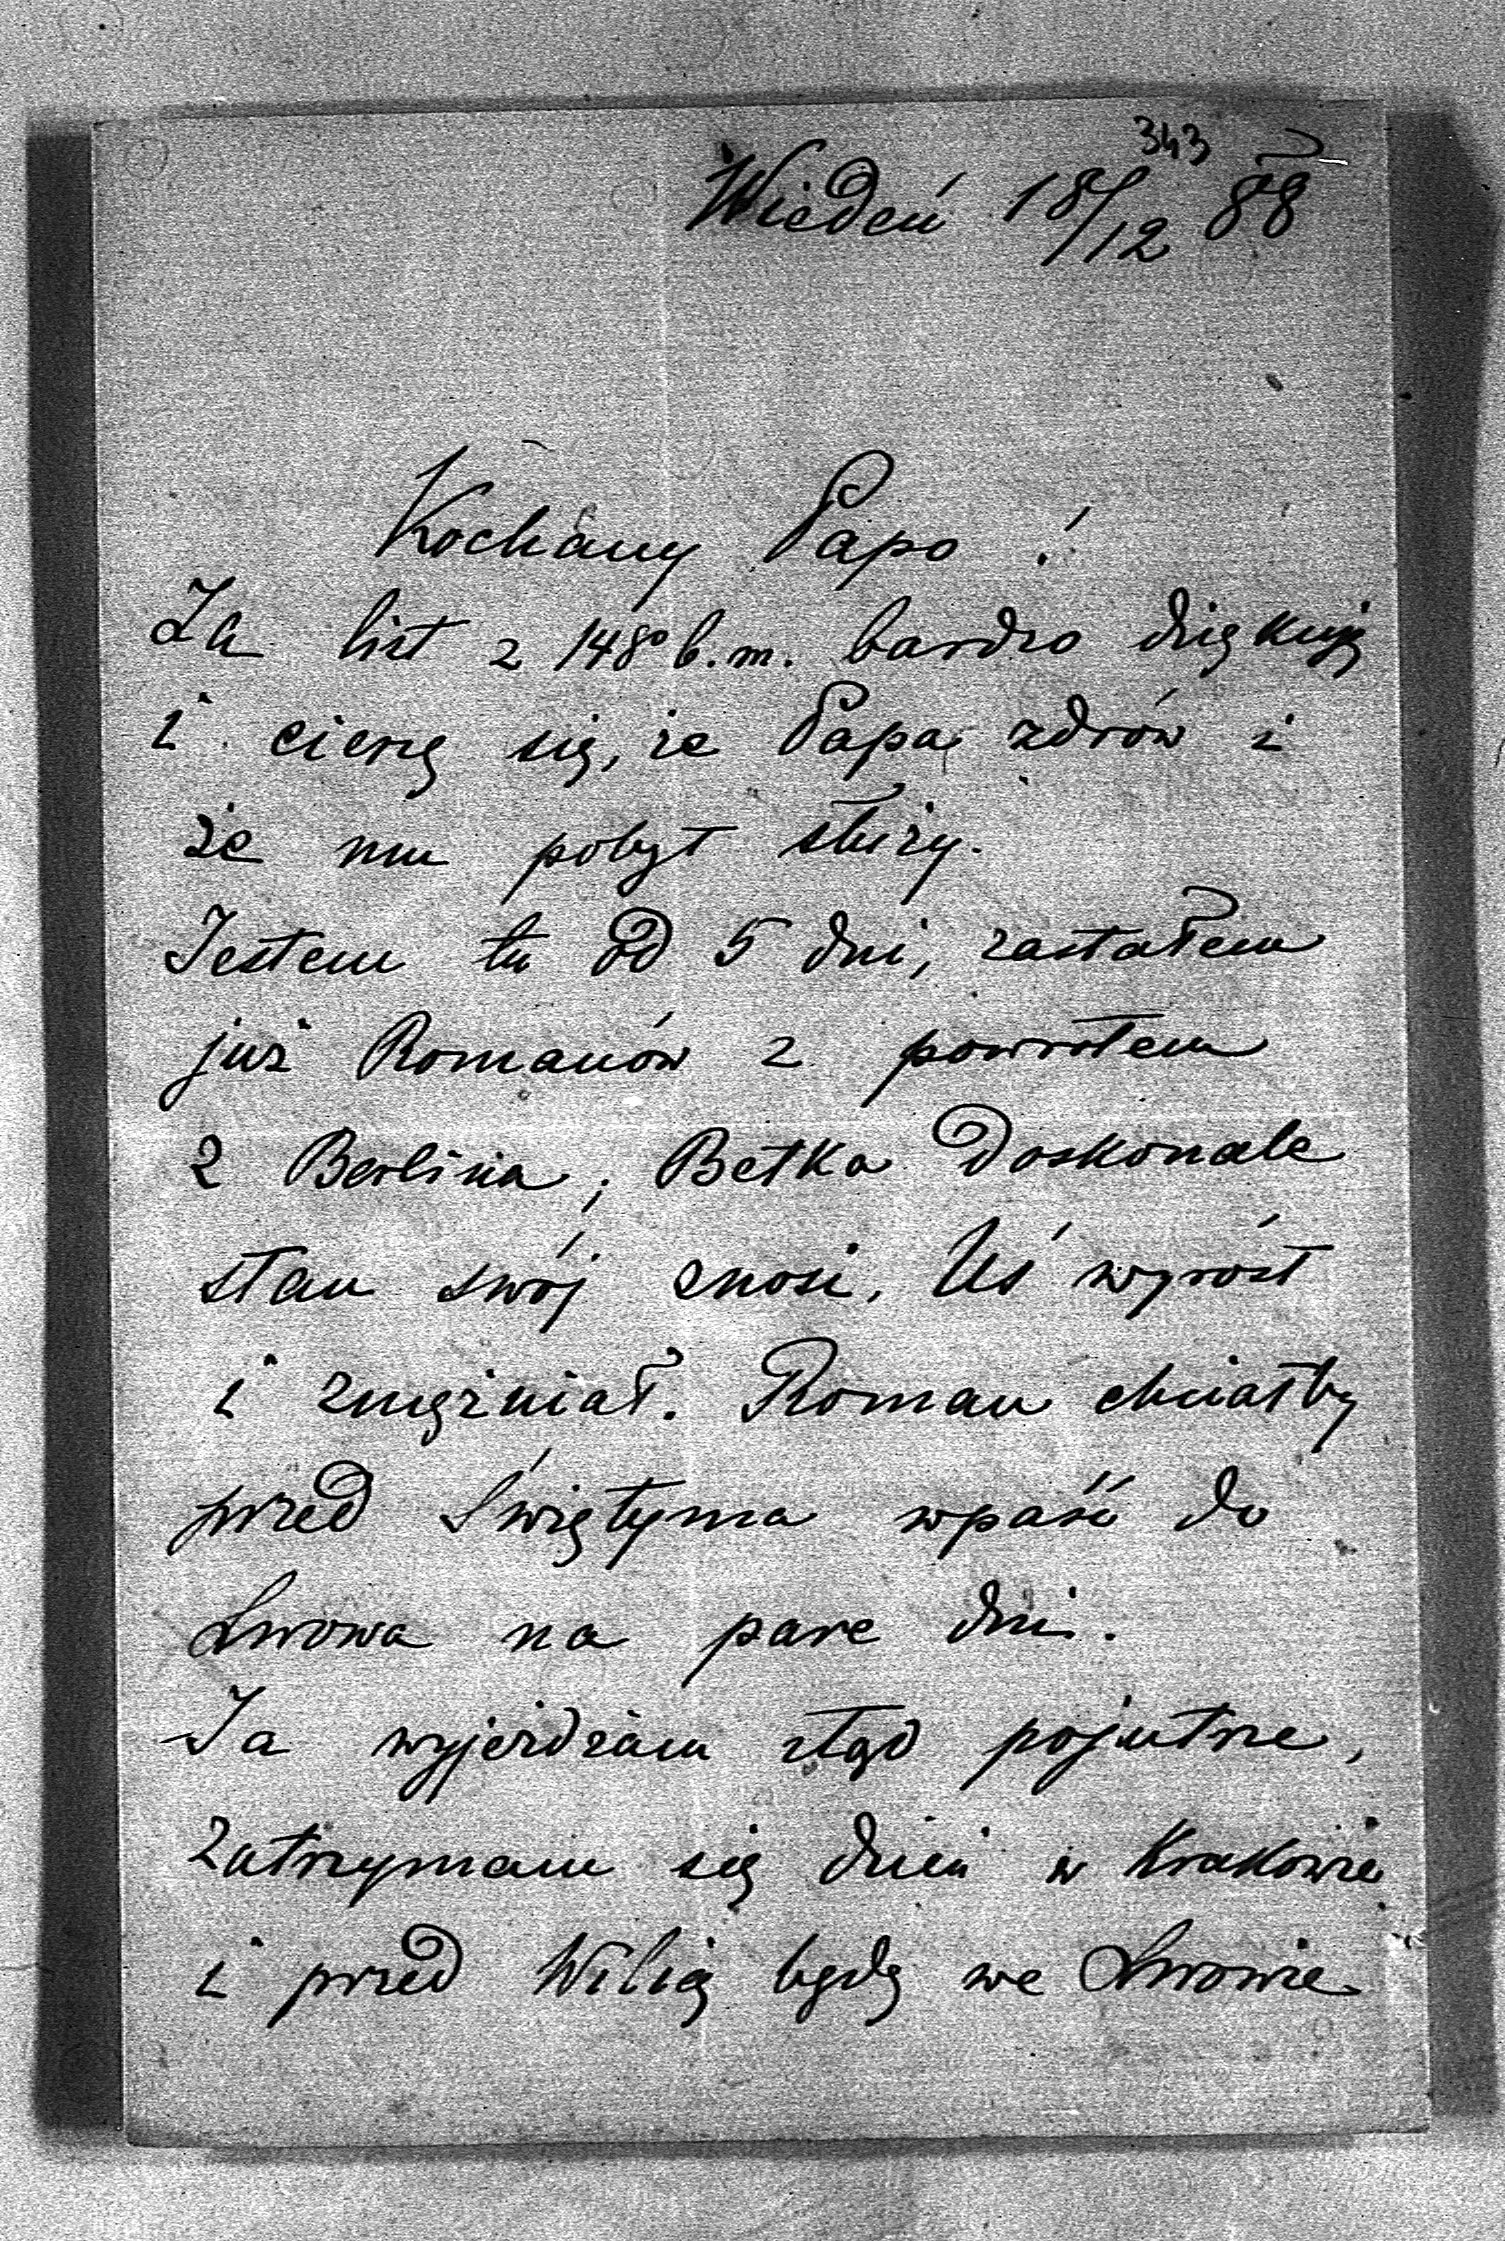 343
Wiedeń 18/12 88
Kochany Papo!
Za list z 14go b.m. bardzo dziękuję
i cieszę się, że Papa zdrów i
że mu pobyt służy.
Jestem tu od 5 dni, zastałem
już Romanów z powrotem
z Berlina; Betka doskonale
stan swój znosi, Uś wyrósł
i zmężniał. Roman chciałby
przed Świętyma wpaść do
Lwowa na parę dni.
Ja wyjeżdżam stąd pojutrze,
zatrzymam się dzień w Krakowie
i przed Wilią będę we Lwowie